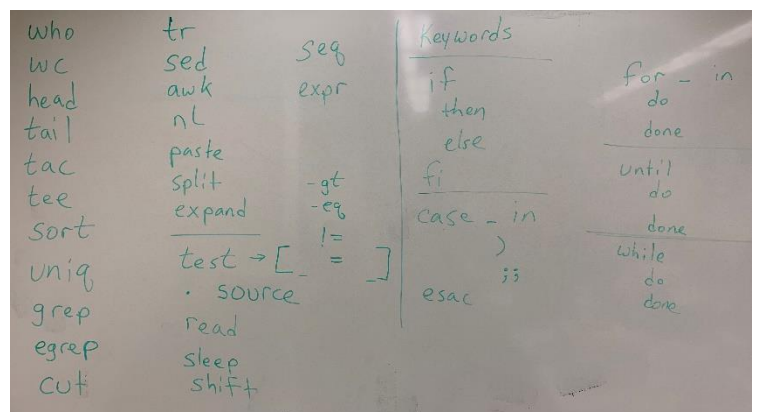 who
wc
head
tail
tac
tee
sort
uniq
grep
egrep
cut
tr
sed
awk
nl
paste
split
expand
test → [ _ = _ ]
. source
read
sleep
shift
seq
expr
-gt
-eq
!=
Keywords
if
then
else
fi
case _ in
)
;;
esac
for _ in
do
done
until
do
done
while
do
done